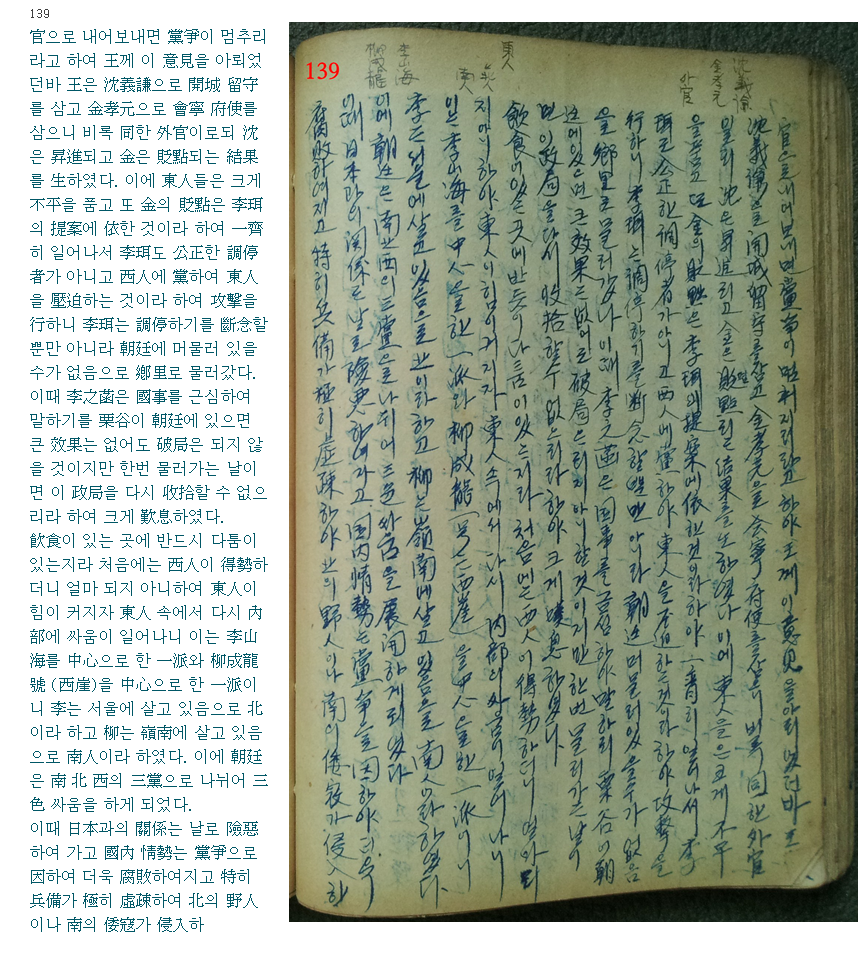 139
官으로 내어보내면 黨爭이 멈추리
라고 하여 王께 이 意見을 아뢰었
던바 王은 沈義謙으로 開城 留守
를 삼고 金孝元으로 會寧 府使를
삼으니 비록 同한 外官이로되 沈
은 昇進되고 金은 貶點되는 結果
를 生하였다. 이에 東人들은 크게
不平을 품고 또 金의 貶點은 李珥
의 提案에 依한 것이라 하여 一齊
히 일어나서 李珥도 公正한 調停
者가 아니고 西人에 黨하여 東人
을 壓迫하는 것이라 하여 攻擊을
行하니 李珥는 調停하기를 斷念할
뿐만 아니라 朝廷에 머물러 있을
수가 없음으로 鄕里로 물러갔다.
이때 李之菡은 國事를 근심하여
말하기를 栗谷이 朝廷에 있으면
큰 效果는 없어도 破局은 되지 않
을 것이지만 한번 물러가는 날이
면 이 政局을 다시 收拾할 수 없으
리라 하여 크게 歎息하였다.
飮食이 있는 곳에 반드시 다툼이
있는지라 처음에는 西人이 得勢하
더니 얼마 되지 아니하여 東人이
힘이 커지자 東人 속에서 다시 內
部에 싸움이 일어나니 이는 李山
海를 中心으로 한 一派와 柳成龍
號 (西崖)을 中心으로 한 一派이
니 李는 서울에 살고 있음으로 北
이라 하고 柳는 嶺南에 살고 있음
으로 南人이라 하였다. 이에 朝廷
은 南 北 西의 三黨으로 나뉘어 三
色 싸움을 하게 되었다.
이때 日本과의 關係는 날로 險惡
하여 가고 國內 情勢는 黨爭으로
因하여 더욱 腐敗하여지고 特히
兵備가 極히 虛疎하여 北의 野人
이나 南의 倭寇가 侵入하
139
沈義謙
金孝元
外官
東人
南人
李山海
柳成龍
官으로내어보내면黨爭이멈처지리라고하야王께이意見을아뢰엿던바王
沈義謙으로開城留守를삼고金孝元을會寧府使를삼으니비록同한外官
沈은昇進되고金은貶點되는結果를生하였다이에東人들은크게不平
을품고또金의貶點은李珥의提案에依한것이라하야一齊히일어나서李
珥도公正한調停者가아니고西人에黨하야東人을압迫하는것이라하야攻擊을
行하니李珥는調停하기를斷念할뿐만아니라朝廷머물러있을수가없음
을鄕里로물러갔다이때李之菡은国事를근심하야말하되栗谷이朝
廷에있으면큰效果는없어도破局은되지아니할것이지만한번물러가는날이
면이政局을다시收拾할수없으리라하야크게嘆息하였다
飮食이있는곳에반듯이다툼이있는지라처음에는西人이得勢하더니얼마되
지아니하야東人이힘이커지자東人속에서다시內部의싸움이일어나니
이는李山海를中心을한一派와柳成龍(号는西崖)을中心을한一派이니
李는서울에살고있음으로北이라하고柳는嶺南에살고있음으로南人이라하였다.
이에朝廷은南北西의三黨으로나뉘어三色싸움을展開하게되였다
이때日本과의関係는날로險惡하여가고国內情勢는黨爭을因하야더욱
腐敗하여지고特히兵備가極히虛疎하야北의野人이나南의倭寇가侵入하